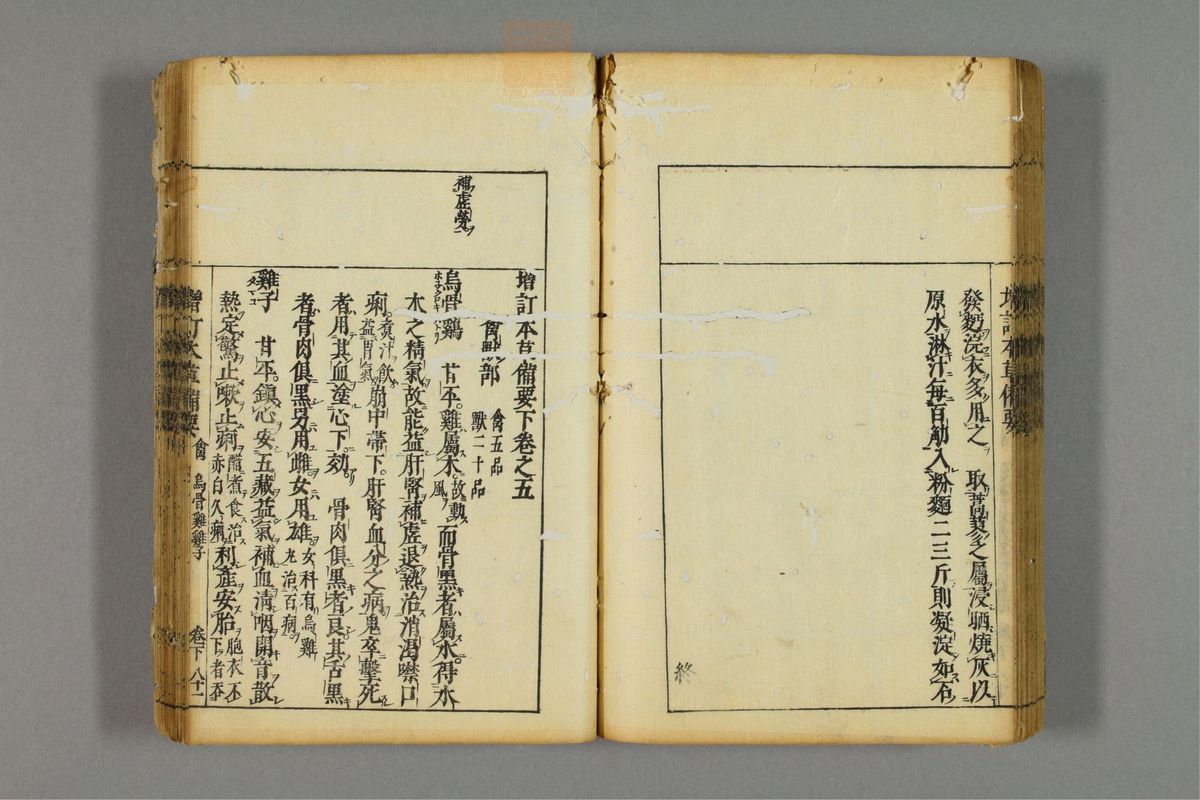 增訂本草備要
發麪浣衣多用之　取蒿蓼之屬浸晒燒灰以
原水淋汁每百觔入粉麵二三斤則凝淀如石
終
增訂本草備要下卷之五
禽獸部　禽五品
獸二十品
補虛勞
烏骨鷄　甘平雞屬木故動風而骨黑者屬水得水
木之精氣故能益肝腎補虛退熱治消渴噤口
痢煮汁飲益胃氣崩中帶下肝腎血分之病鬼卒擊死
者用其血塗心下效　骨肉俱黑者良其舌黑
者骨肉俱黑男用雌女用雄女科有烏雞丸治百病
雞子　甘平鎮心安五藏益氣補血清咽開音散
熱定驚止嗽止痢醋煮食治赤白久痢利產安胎胞衣不下者吞
增訂本草備要　禽　烏骨雞雞子　卷下　八十一